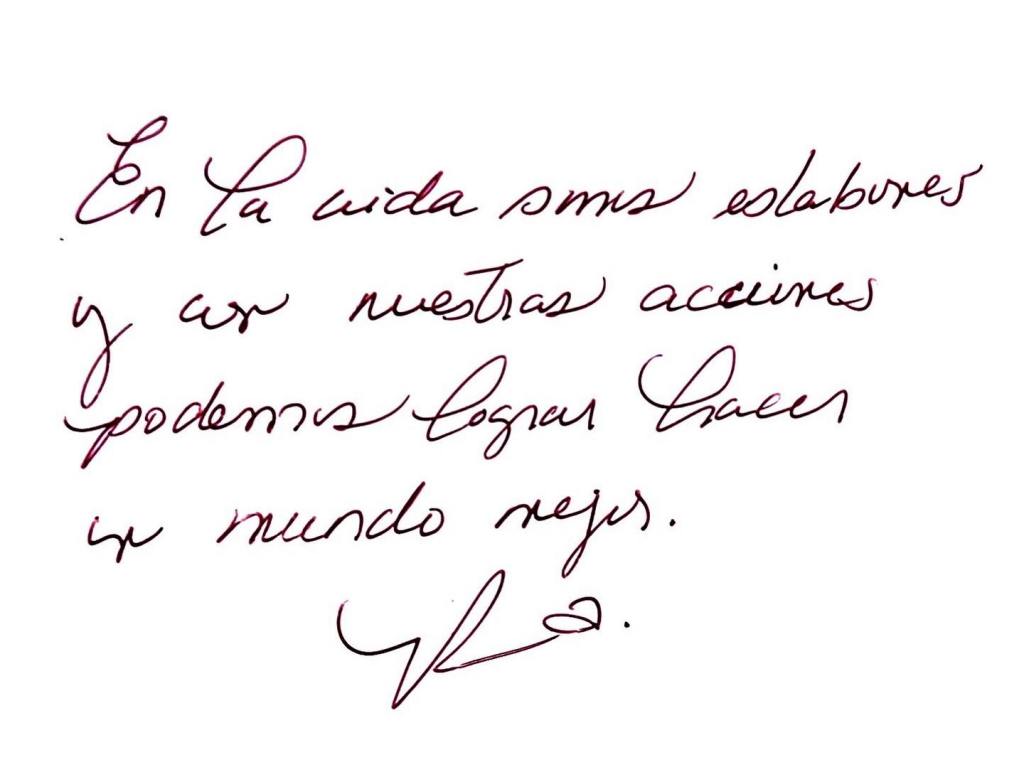 En la vida somos eslabones
y con nuestras acciones
podemos lograr hacer
un mundo mejor.